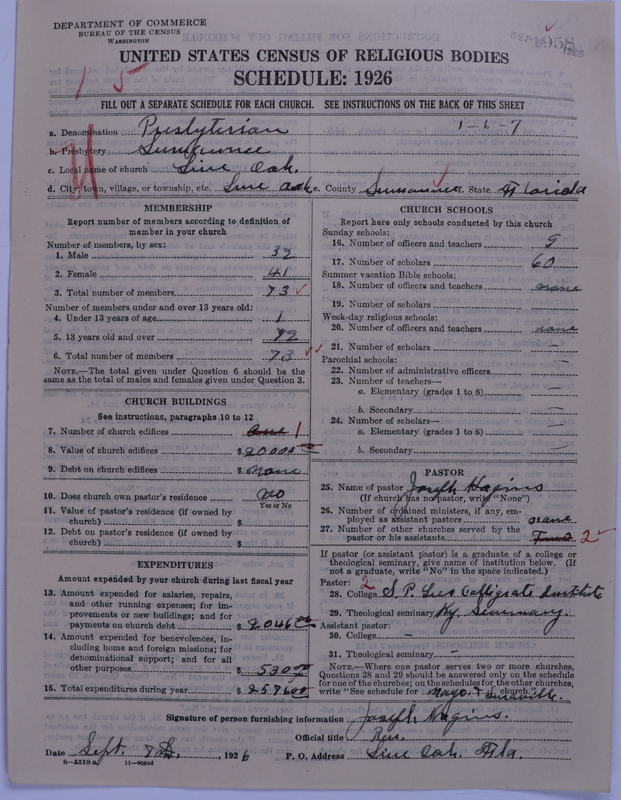 DEPARTMENT OF COMMERCE
BUREAU OF THE CENSUS
WASHINGTON
1958
UNITED STATES CENSUS OF RELIGIOUS BODIES
SCHEDULE: 1926
1 5
FILL OUT A SEPARATE SCHEDULE FOR EACH CHURCH. SEE INSTRUCTIONS ON THE BACK OF THIS SHEET
a. Denomination Presbyterian 1-6-7
b. Presbytery Suwannee
c. Local name of church Live Oak
d. City, town, village, or township, etc. Live Oak e. County Suwannee f. State Florida
MEMBERSHIP
Report number of members according to definition of
member in your church
Number of members, by sex:
1. Male 32
2. Female 41
3. Total number of members 73
Number of members under and over 13 years old:
4. Under 13 years of age 1
5. 13 years old and over 72
6. Total number of members 73
NOTE.—The total given under Question 6 should be
same as the total of males and females given under Question 3.
CHURCH BUILDINGS
See instructions, paragraphs 10 to 12
7. Number of church edifices one 1
8. Value of church edifices $20000.00
9. Debt on church edifices $None
10. Does church own pastor's residence no
Yes or No
11. Value of pastor's residence (if owned by
church) $
12. Debt on pastor's residence (if owned by
church) $
EXPENDITURES
Amount expended by your church during last fiscal year
13. Amount expended for salaries, repairs,
and other running expenses; for im-
provements or new buildings; and for
payments on church debt $2046.00
14. Amount expended for benevolences, in-
cluding home and foreign missions; for
denominational support; and for all
other purposes $530
15. Total expenditures during year $2576.00
CHURCH SCHOOLS
Report here only schools conducted by this church
Sunday schools:
16. Number of officers and teachers 9
17. Number of scholars 60
Summer vacation Bible schools:
18. Number of officers and teachers none
19. Number of scholars —
Week-day religious schools:
20. Number of officers and teachers none
21. Number of scholars —
Parochial schools:
22. Number of administrative officers —
23. Number of teachers—
a. Elementary (grades 1 to 8) —
b. Secondary —
24. Number of scholars—
a. Elementary (grades 1 to 8) —
b. Secondary —
PASTOR
25. Name of pastor Joseph Hagins
(If church has no pastor, write "None")
26. Number of ordained ministers, if any, em-
ployed as assistant pastors none
27. Number of other churches served by the
pastor or his assistants 2
If pastor (or assistant pastor) is a graduate of a college or
theological seminary, give name of institution below. (If
not a graduate, write "No" in the space indicated.)
Pastor: 2
28. College S. P. Lees Collegiate Institute
29. Theological seminary Ky. Seminary.
Assistant pastor:
30. College —
31. Theological seminary —
NOTE.—Where one pastor serves two or more churches,
Questions 28 and 29 should be answered only on the schedule
for one of the churches; on the schedules for the other churches,
write "See schedule for Mayo church."
Signature of person furnishing information Joseph Hagins.
Official title Rev.
Date Sept. , 1926 P. O. Address Live Oak, Fla.
8-5518a 11-9554d